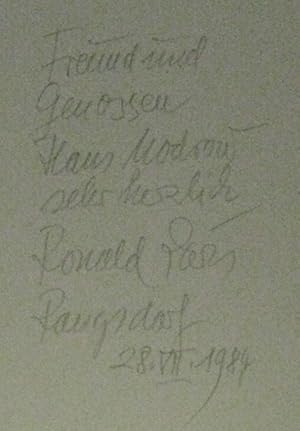 Freund und
Genossen
Hans Modrow
sehr herzlich
Ronald Paris
Rangsdorf
28.VII.1984